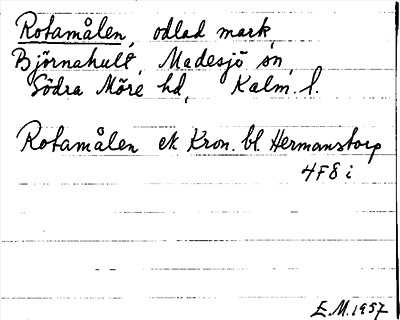 Rotamålen, odlad mark,
Björnahult, Madesjö sn,
Södra Möre hd, Kalm. l.
Rotamålen ek Kron. bl. Hermanstorp
4F8 i
E.M. 1957